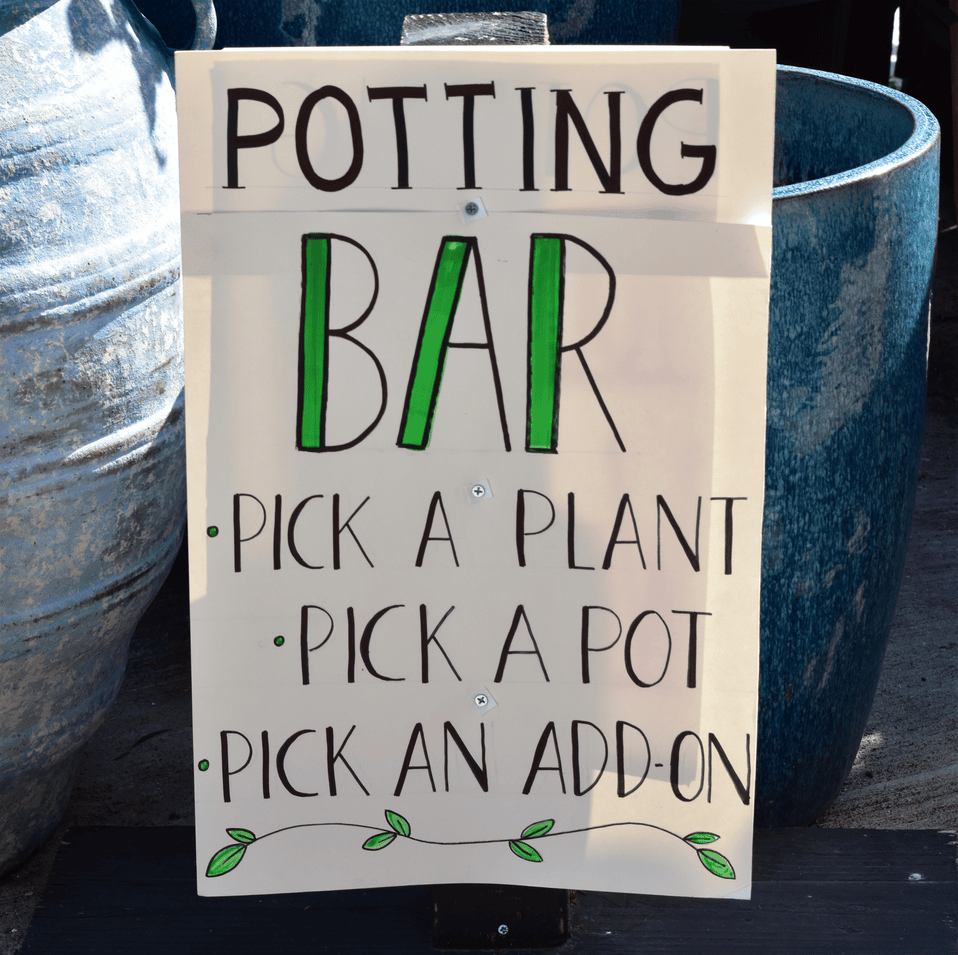 POTTING
BAR
• PICK A PLANT
• PICK A POT
• PICK AN ADD-ON